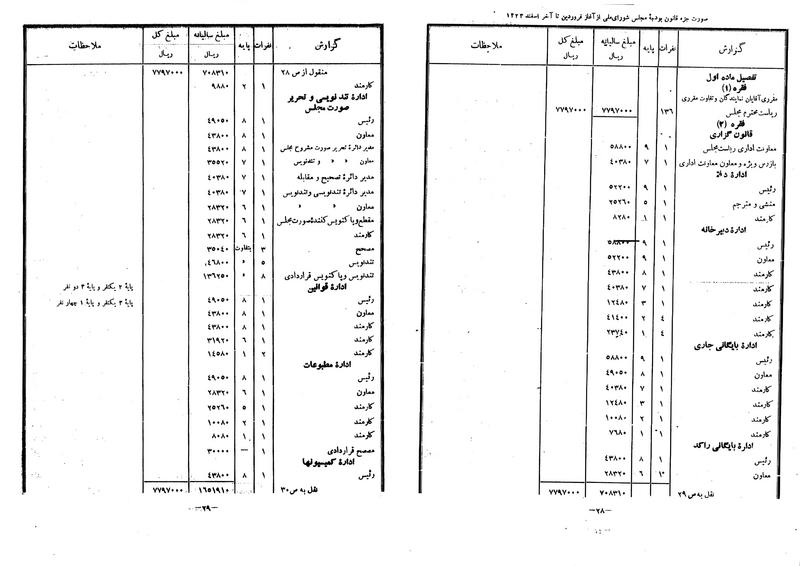 صورت جزء قانون بودجهٔ مجلس شورای‌ملی از آغاز فروردین تا آخر اسفند ۱۳۲۳
گزارش نفرات پایه مبلغ سالیانه ریال مبلغ کل ریال ملاحظات
تفصیل ماده اول
فقره (۱)
مقرری آقایان نمایندگان و تفاوت مقرری
ریاست محترم مجلس ۱۳۶ ۷۷۹۷۰۰۰ ۷۷۹۷۰۰۰
فقره (۲)
قانون گزاری
معاونت اداری ریاست مجلس ۱ ۹ ۵۸۸۰۰
بازرس ویژه و معاون معاونت اداری ۱ ۷ ۴۰۳۸۰
ادارهٔ
رئیس ۱ ۹ ۵۲۲۰۰
منشی و مترجم ۱ ۵ ۲۵۲۶۰
کارمند ۱ ۱ ۸۲۸۰
ادارهٔ دبیرخانه
رئیس ۱ ۹ ۵۸۸۰۰
معاون ۱ ۹ ۵۲۲۰۰
کارمند ۱ ۸ ۴۳۸۰۰
کارمند ۱ ۷ ۴۰۳۸۰
کارمند ۱ ۳ ۱۲۴۸۰
کارمند ۴ ۲ ۴۱۴۰۰
کارمند ۴ ۱ ۲۳۷۴۰
ادارهٔ بایگانی جاری
رئیس ۱ ۹ ۵۸۸۰۰
معاون ۱ ۸ ۴۹۰۵۰
کارمند ۱ ۷ ۴۰۳۸۰
کارمند ۱ ۳ ۱۲۴۸۰
کارمند ۱ ۲ ۱۰۰۸۰
کارمند ۱ ۱ ۷۶۸۰
ادارهٔ بایگانی راکد
رئیس ۱ ۸ ۴۳۸۰۰
معاون ۱ ۶ ۲۸۳۲۰
نقل به ص ۲۹ ۷۰۸۳۱۰ ۷۷۹۷۰۰۰
—۲۸—
گزارش نفرات پایه مبلغ سالیانه ریال مبلغ کل ریال ملاحظات
منقول از ص ۲۸ ۷۰۸۳۱۰ ۷۷۹۷۰۰۰
کارمند ۱ ۲ ۹۸۸۰
ادارهٔ تندنویسی و تحریر
صورت مجلس
رئیس ۱ ۸ ۴۹۰۵۰
معاون ۱ ۸ ۴۳۸۰۰
مدیر دائرهٔ تحریر صورت مشروح مجلس ۱ ۸ ۴۳۸۰۰
معاون » » و تندنویس ۱ ۷ ۳۵۵۲۰
مدیر دائرهٔ تصحیح و مقابله ۱ ۷ ۴۰۳۸۰
مدیر دائرهٔ تندنویسی وتندنویس ۱ ۷ ۴۰۳۸۰
معاون » » ۱ ۶ ۲۸۳۲۰
مقطع و پاکنویس کنندهٔ صورت مجلس ۱ ۶ ۲۸۳۲۰
کارمند ۱ ۶ ۲۸۳۲۰
مصحح ۳ بتفاوت ۳۵۰۴۰
تندنویس ۵ » ۴۶۸۰۰
تندنویس و پاکنویس قراردادی ۸ » ۱۳۶۲۵۰ پایهٔ ۲ یکنفر و پایهٔ ۳ دو نفر
ادارهٔ قوانین
رئیس ۱ ۸ ۴۹۰۵۰ پایهٔ ۲ یکنفر و پایهٔ ۱ چهار نفر
معاون ۱ ۸ ۴۳۸۰۰
کارمند ۱ ۸ ۴۳۸۰۰
کارمند ۱ ۶ ۳۱۹۲۰
کارمند ۲ ۱ ۱۴۵۸۰
ادارهٔ مطبوعات
رئیس ۱ ۸ ۴۹۰۵۰
معاون ۱ ۶ ۲۸۳۲۰
کارمند ۱ ۵ ۲۵۲۶۰
کارمند ۱ ۲ ۱۰۰۸۰
کارمند ۱ ۱ ۸۰۸۰
مصحح قراردادی ۱ — ۳۰۰۰۰
ادارهٔ کمیسیونها
رئیس ۱ ۸ ۴۳۸۰۰
نقل به ص ۳۰ ۱۶۵۱۹۱۰ ۷۷۹۷۰۰۰
—۲۹—